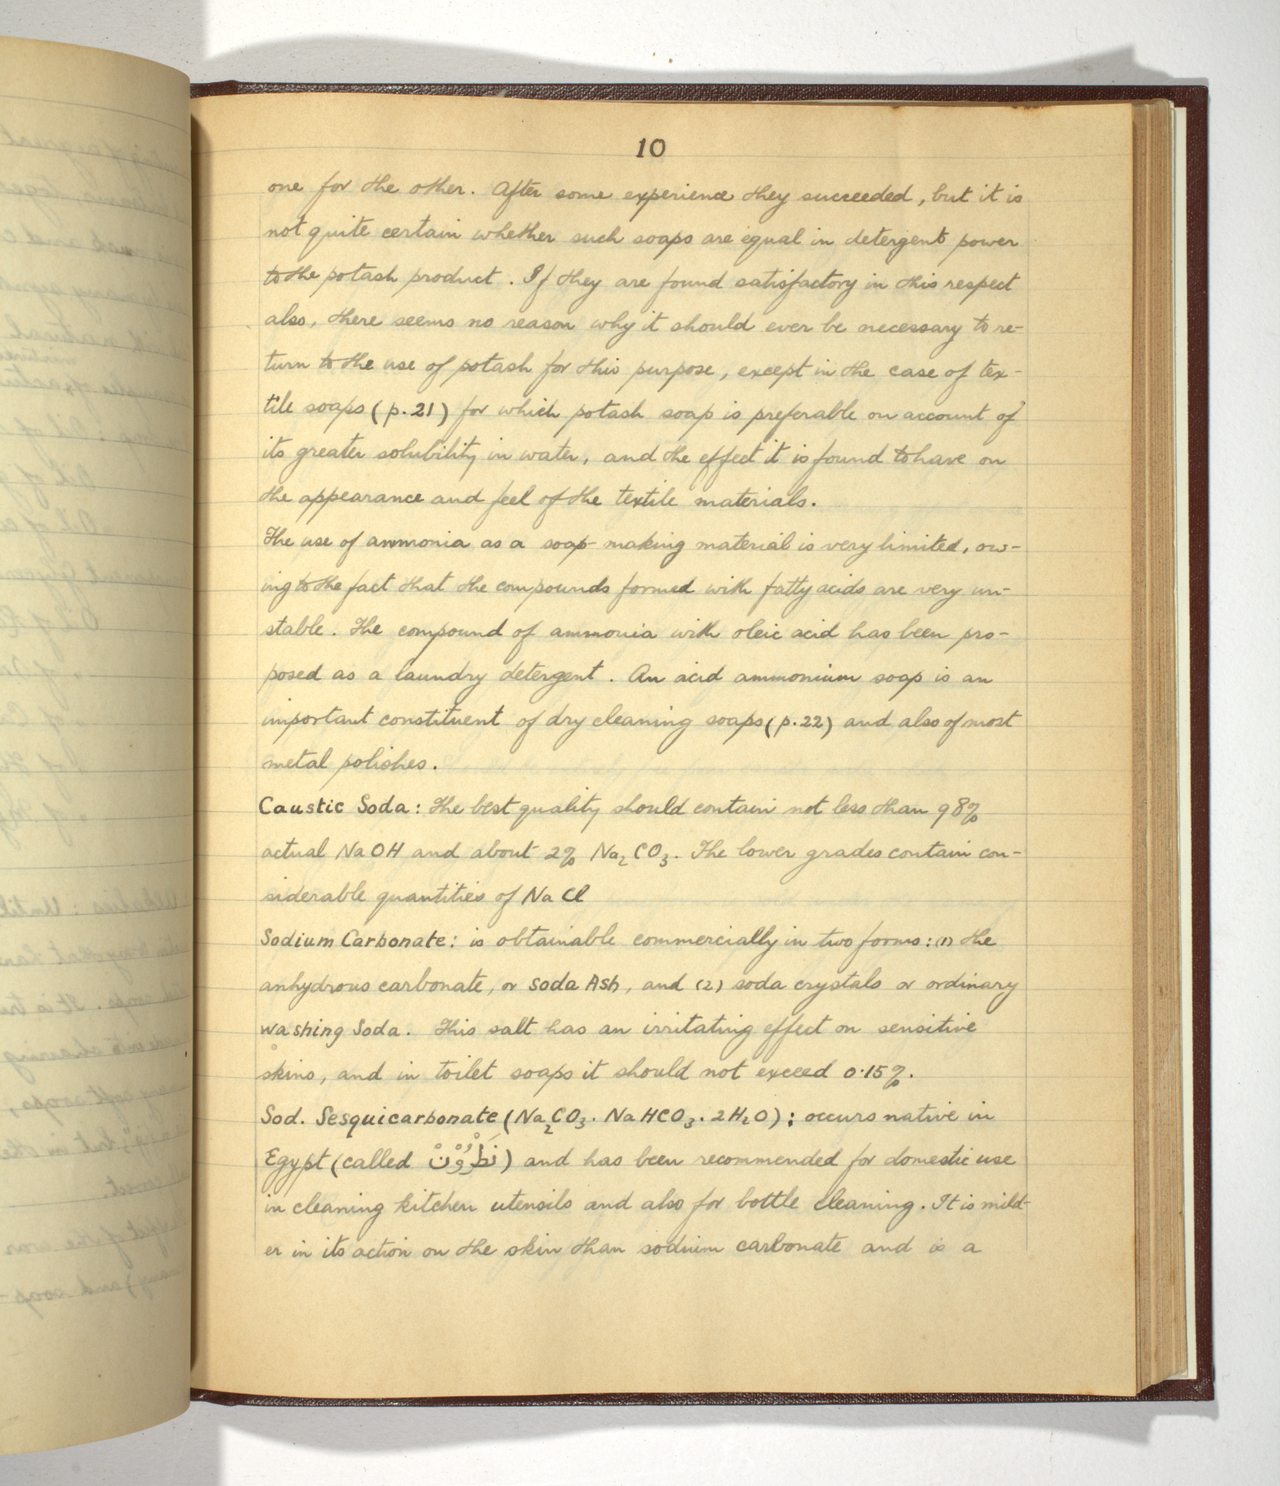 10
one for the other. After some experience they succeeded, but it is
not quite certain whether such soaps are equal in detergent power
to the potash product. If they are found satisfactory in this respect
also, there seems no reason why it should ever be necessary to re-
turn to the use of potash for this purpose, except in the case of tex-
tile soaps (p.21) for which potash soap is preferable on account of
its greater solubility in water, and the effect it is found to have on
the appearance and feel of the textile materials.
The use of ammonia as a soap-making material is very limited, ow-
ing to the fact that the compounds formed with fatty acids are very un-
stable. The compound of ammonia with oleic acid has been pro-
posed as a laundry detergent. An acid ammonium soap is an
important constituent of dry cleaning soaps (p.22) and also of most
metal polishes.
Caustic Soda: The best quality should contain not less than 98%
actual NaOH and about 2% Na₂CO₃. The lower grades contain con-
siderable quantities of NaCl
Sodium Carbonate: is obtainable commercially in two forms: (1) the
anhydrous carbonate, or Soda Ash, and (2) soda crystals or ordinary
washing Soda. This salt has an irritating effect on sensitive
skins, and in toilet soaps it should not exceed 0.15%.
Sod. Sesquicarbonate (Na₂CO₃. NaHCO₃. 2H₂O); occurs native in
Egypt (called نَطْرُوْنْ) and has been recommended for domestic use
in cleaning kitchen utensils and also for bottle cleaning. It is mild-
er in its action on the skin than sodium carbonate and is a